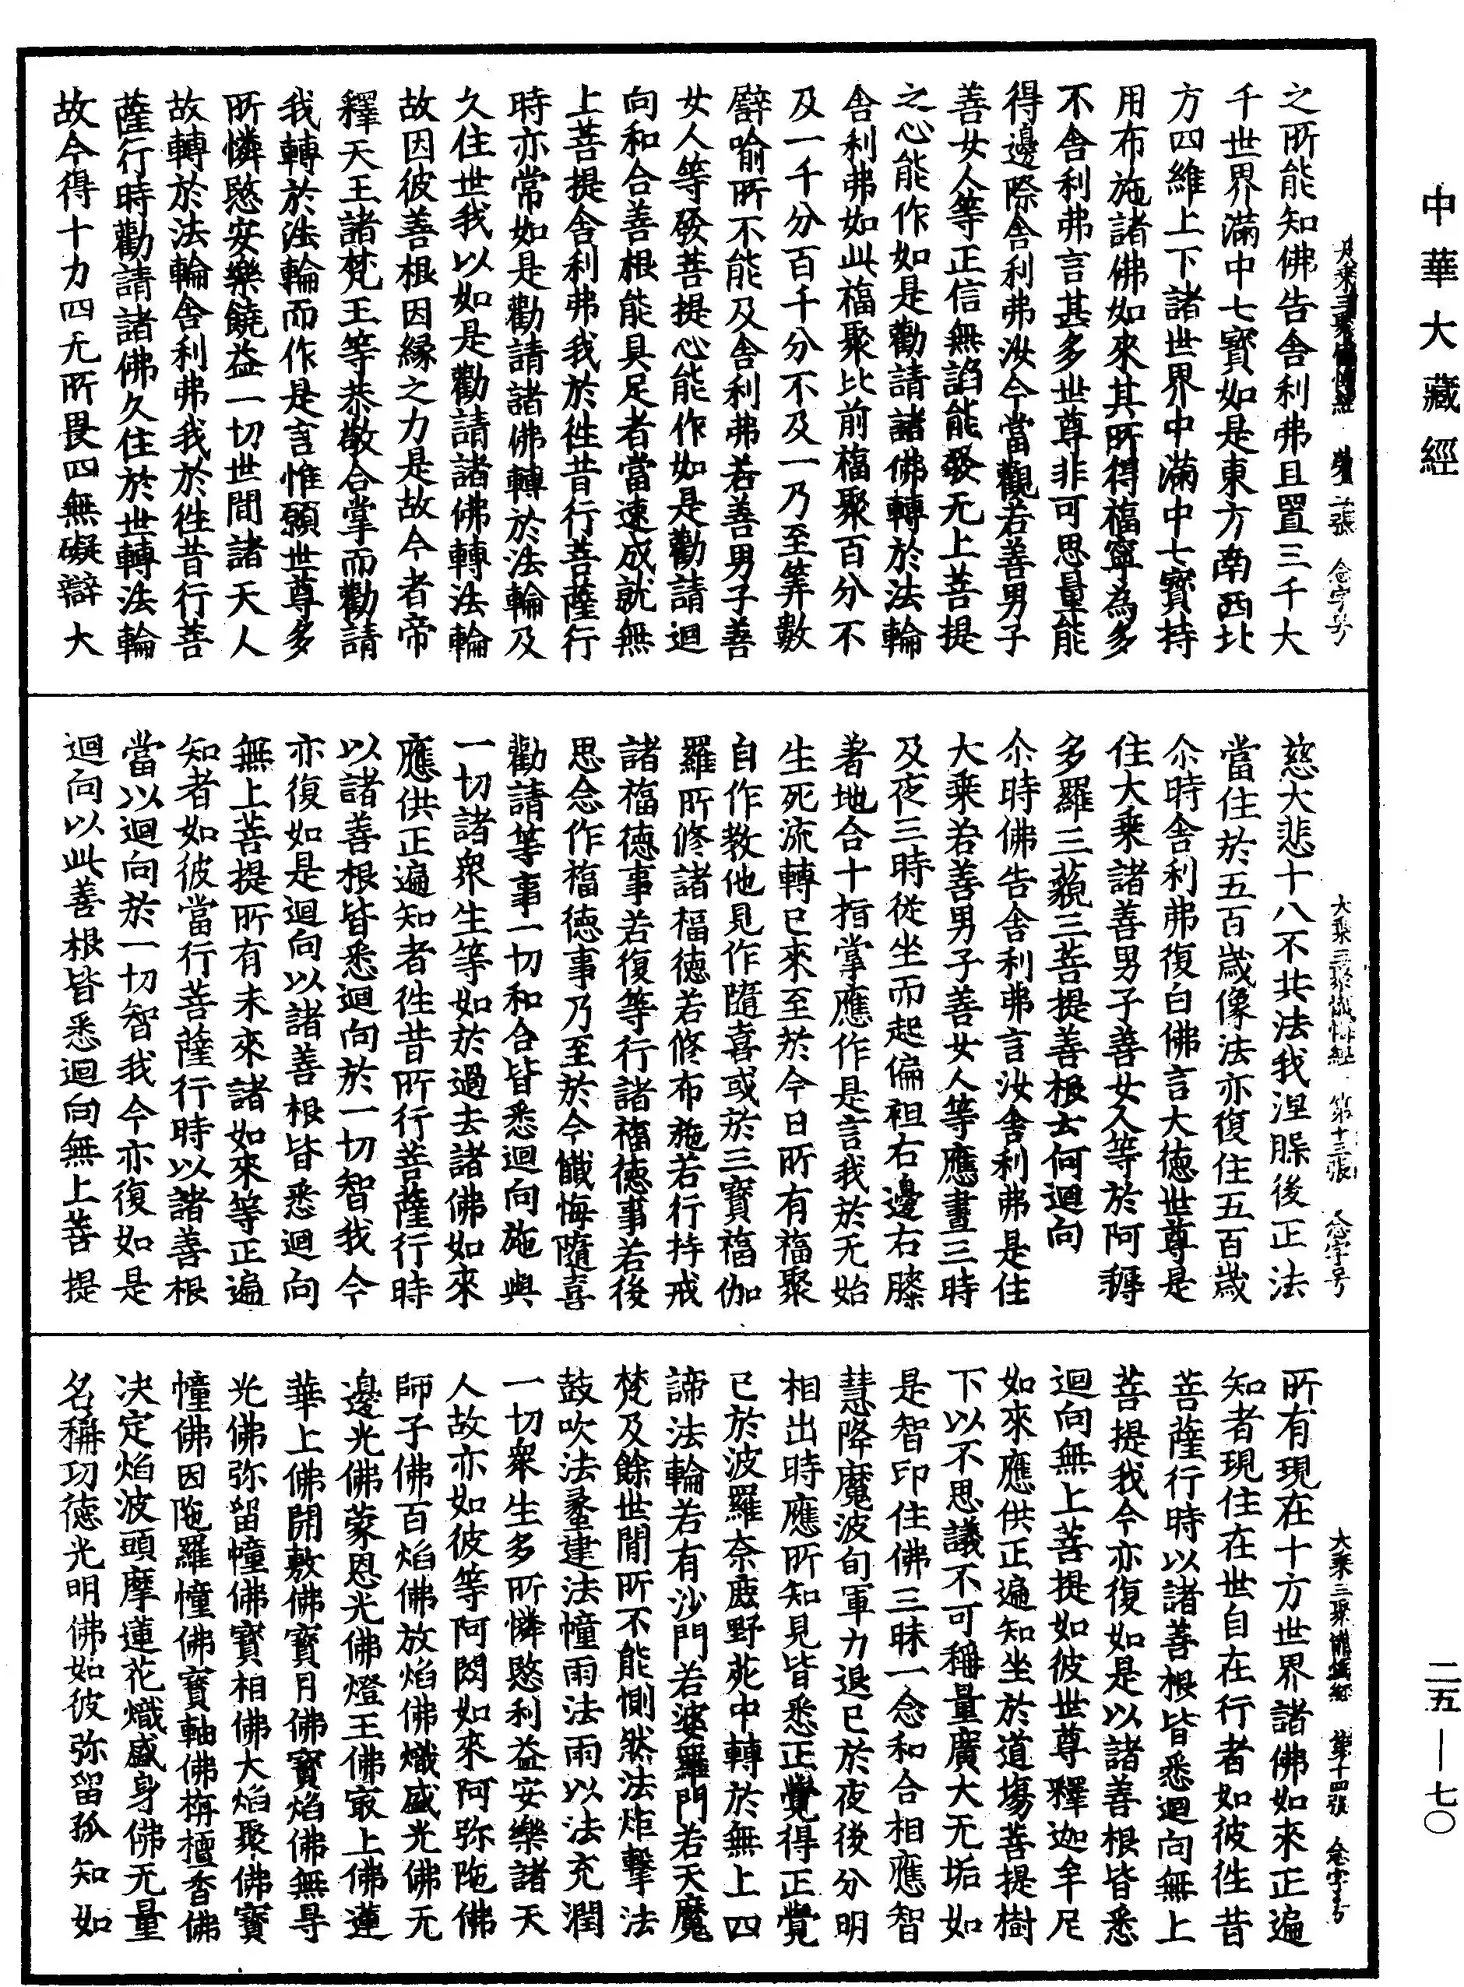 中華大藏經
二五—七〇
之所能知佛告舍利弗且置三千大
千世界滿中七寶如是東方南西北
方四維上下諸世界中滿中七寶持
用布施諸佛如來其所得福寧為多
不舍利弗言甚多世尊非可思量能
得邊際舍利弗汝今當觀若善男子
善女人等正信無諂能發无上菩提
之心能作如是勸請諸佛轉於法輪
舍利弗如此福聚比前福聚百分不
及一千分百千分不及一乃至筭數
譬喻所不能及舍利弗若善男子善
女人等發菩提心能作如是勸請迴
向和合善根能具足者當速成就無
上菩提舍利弗我於往昔行菩薩行
時亦常如是勸請諸佛轉於法輪及
久住世我以如是勸請諸佛轉法輪
故因彼善根因緣之力是故今者帝
釋天王諸梵王等恭敬合掌而勸請
我轉於法輪而作是言惟願世尊多
所憐愍安樂饒益一切世間諸天人
故轉於法輪舍利弗我於往昔行菩
薩行時勸請諸佛久住於世轉法輪
故今得十力四无所畏四無礙辯大
大乘三聚懺悔經 第十三張 念字号
慈大悲十八不共法我涅槃後正法
當住於五百歲像法亦復住五百歲
尒時舍利弗復白佛言大德世尊是
住大乘諸善男子善女人等於阿耨
多羅三藐三菩提善根云何迴向
尒時佛告舍利弗言汝舍利弗是住
大乘若善男子善女人等應晝三時
及夜三時從坐而起偏袒右邊右膝
著地合十指掌應作是言我於无始
生死流轉已來至於今日所有福聚
自作教他見作隨喜或於三寶福伽
羅所修諸福德若修布施若行持戒
諸福德事若復等行諸福德事若後
思念作福德事乃至於今懺悔隨喜
勸請等事一切和合皆悉迴向施與
一切諸衆生等如於過去諸佛如來
應供正遍知者往昔所行菩薩行時
以諸善根皆悉迴向於一切智我今
亦復如是迴向以諸善根皆悉迴向
無上菩提所有未來諸如來等正遍
知者如彼當行菩薩行時以諸善根
當以迴向於一切智我今亦復如是
迴向以此善根皆悉迴向無上菩提
大乘三聚懺悔經 第十四張 念字号
所有現在十方世界諸佛如來正遍
知者現住在世自在行者如彼往昔
菩薩行時以諸善根皆悉迴向無上
菩提我今亦復如是以諸善根皆悉
迴向無上菩提如彼世尊釋迦牟尼
如來應供正遍知坐於道場菩提樹
下以不思議不可稱量廣大无垢如
是智印住佛三昧一念和合相應智
慧降魔波旬軍力退已於夜後分明
相出時應所知見皆悉正覺得正覺
已於波羅奈鹿野苑中轉於無上四
諦法輪若有沙門若婆羅門若天魔
梵及餘世間所不能惻然法炬擊法
鼓吹法蠡建法幢雨法雨以法充潤
一切衆生多所憐愍利益安樂諸天
人故亦如彼等阿閦如來阿弥陁佛
師子佛百焰佛放焰佛熾盛光佛无
邊光佛蒙恩光佛燈王佛㝡上佛蓮
華上佛開敷佛寶月佛寶焰佛無㝵
光佛弥留幢佛寶相佛大焰聚佛寶
幢佛因陁羅幢佛寶軸佛栴檀香佛
决定焰波頭摩蓮花熾盛身佛无量
名稱功德光明佛如彼弥留孤知如